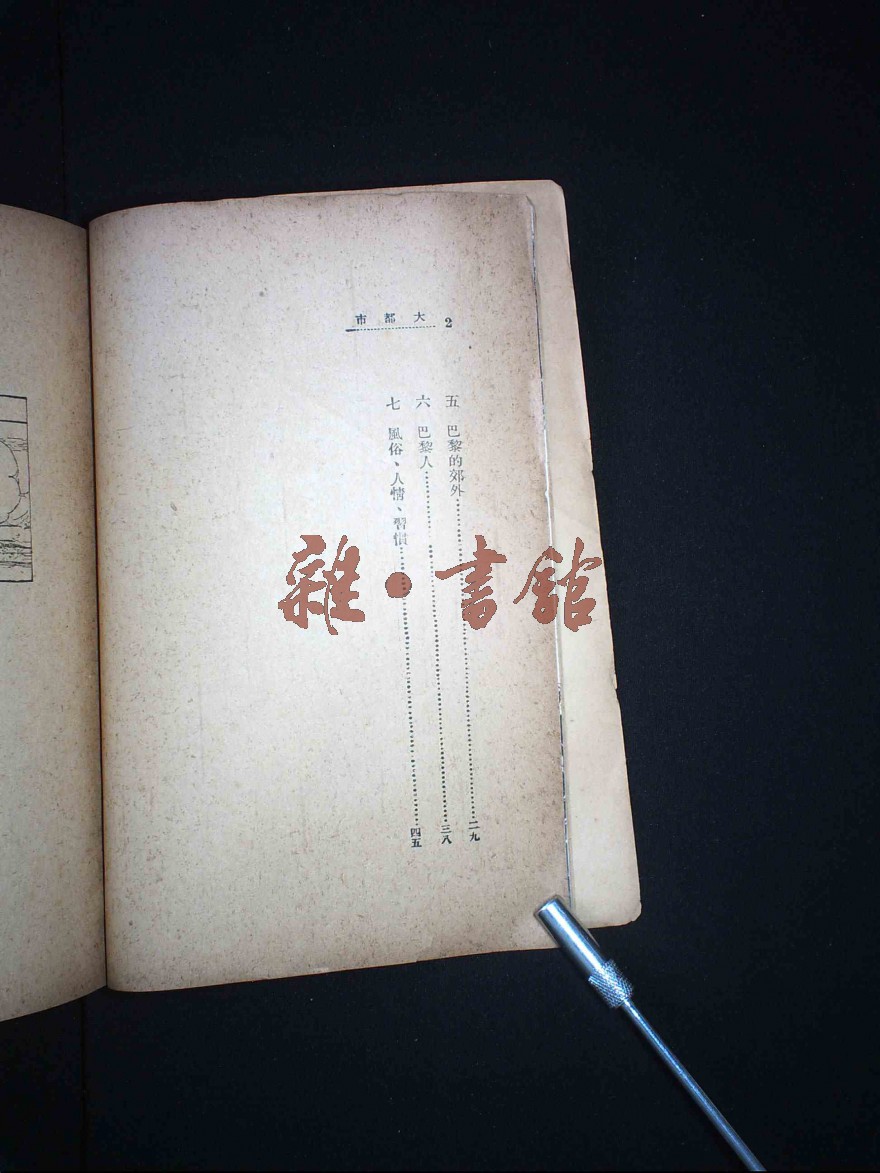 大都市 2
五 巴黎的郊外……二九
六 巴黎人……三八
七 風俗、人情、習慣……四五
雜·書館